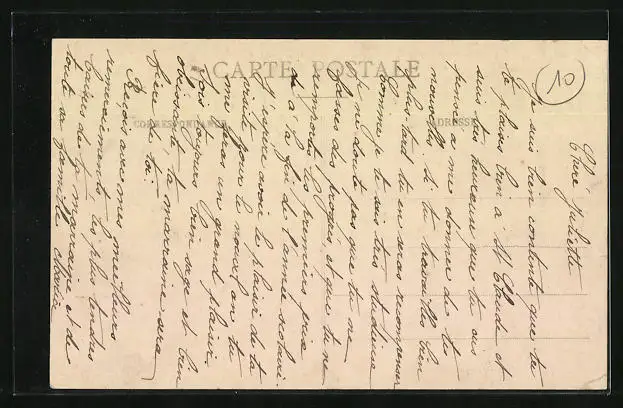 CARTE POSTALE
CORRESPONDANCE
ADRESSE
10
Chère Juliette
Je suis bien contente que tu
te plaises bien à St Claude et
suis très heureuse que tu aies
pensée a me donner de tes
nouvelles. Si tu travailles bien
plus tard tu en seras récompensée
comme je te sais très studieuse
je ne doute pas que tu ne
fasses des progrès et que tu ne
remportes les premiers prix
à la fin de l'année scolaire.
J'espère avoir le plaisir de ta
visite pour le nouvel an tu
me feras un grand plaisir.
Sois toujours bien sage et bien
obéissante ta marraine sera
fière de toi.
Reçois avec mes meilleurs
remerciements les plus tendres
baisers de ta marraine et de
toute sa famille